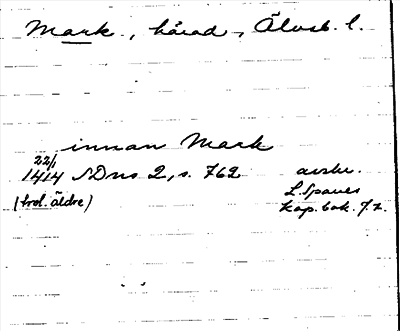 Mark, härad, Älvsb. l.
innan Mark
22/1
1414 SDns 2, s. 762 avskr.
(trol. äldre) L. Spaues
kop.bok. f. 7.